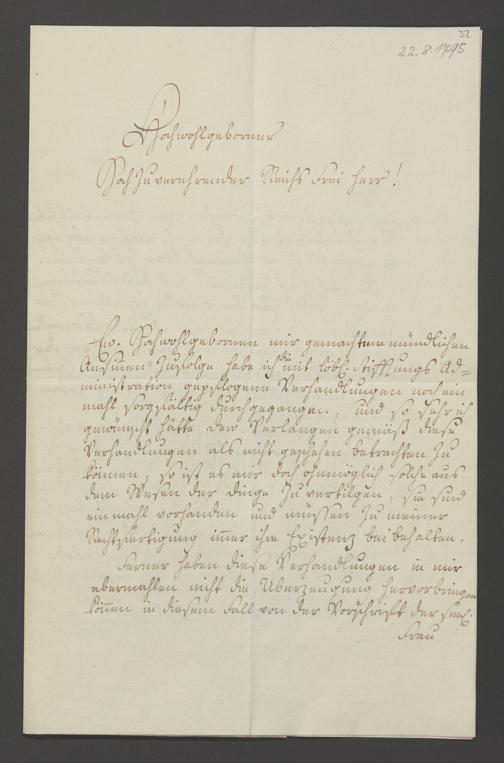 32
22.8.1795
Hochwohlgeborner
Hoch zuverehrender Reichs Frei Herr!
Ew. Hochwohlgebornen mir gemachtem mündlichen
Ansinnen zufolge habe ich die mit löbl. Stifftungs Ad=
ministration gepflogene Verhandlungen noch ein
mahl sorgfältig durchgegangen, und so sehr ich
gewünscht hätte dero Verlangen gemäß diese
Verhandlungen als nicht geschehen betrachten zu
können, so ist es mir doch ohnmöglich solche aus
dem Wesen der dinge zu vertilgen, sie sind
einmahl vorhanden und müssen zu meiner
Rechtfertigung immer ihre Existenz beibehalten.
Ferner haben diese Verhandlungen in mir
abermahlen nicht die Uberzeugung hervorbringen
können in diesem Fall von der Vorschrift der
Frau